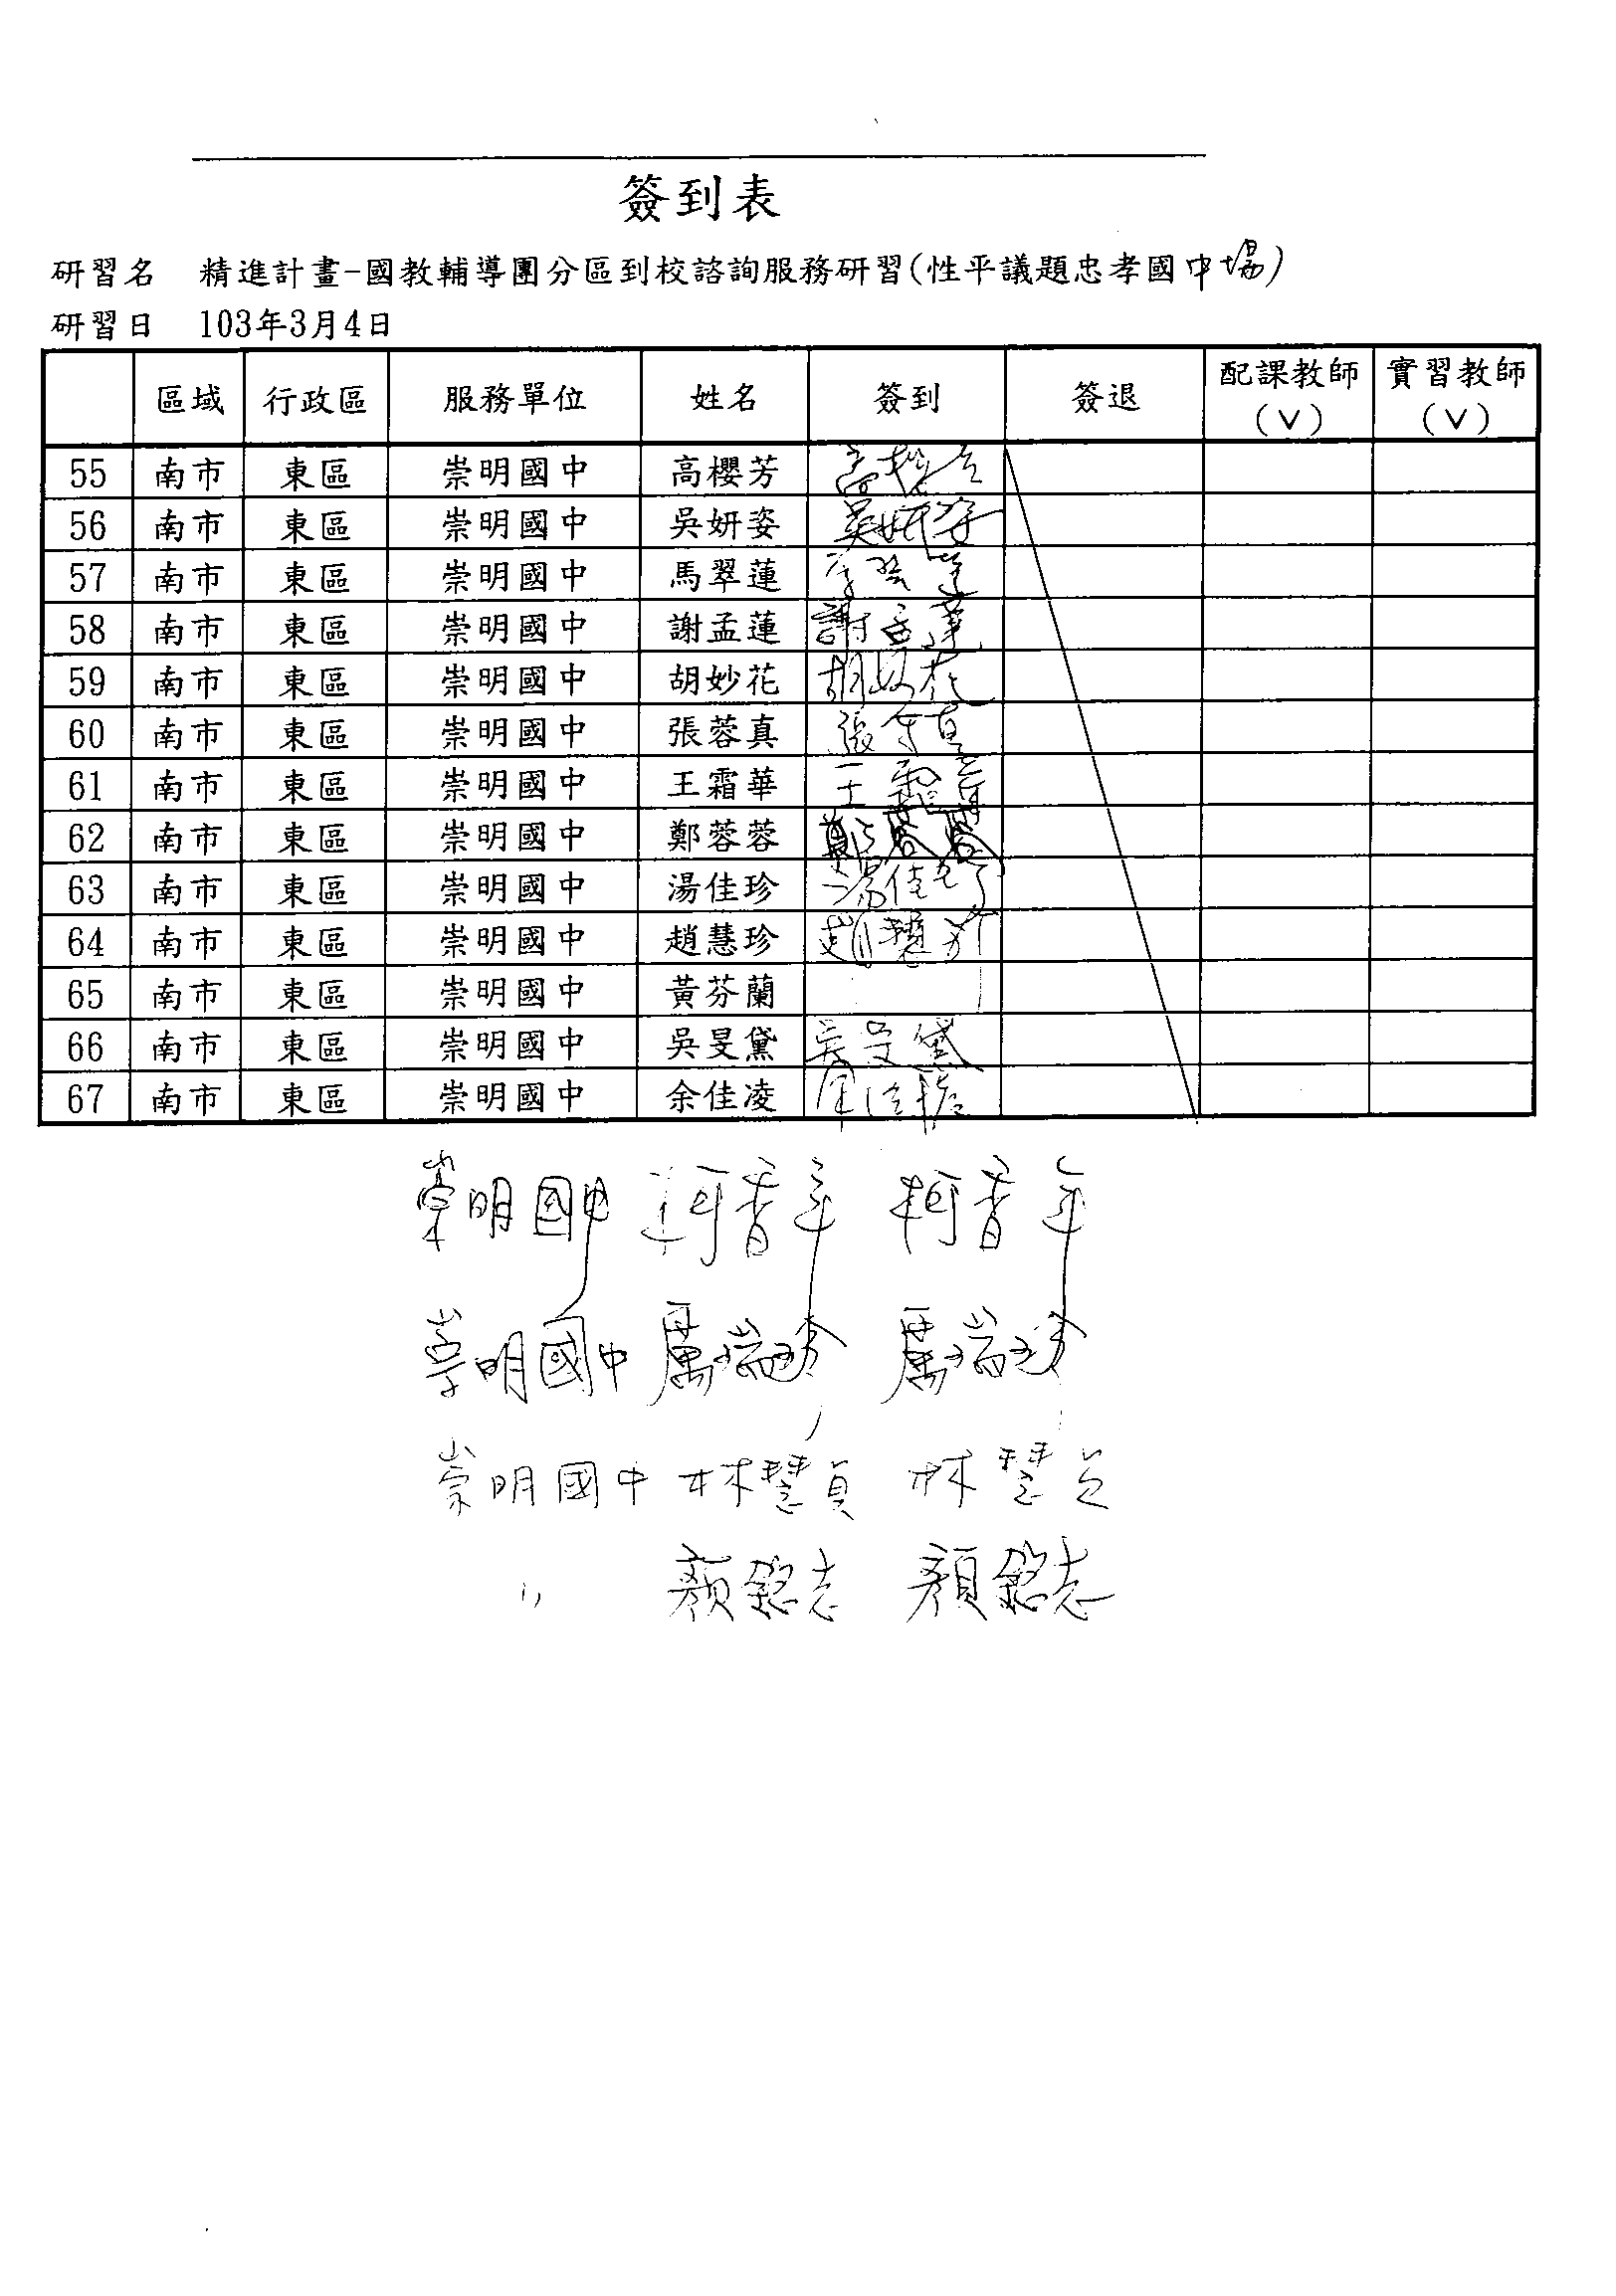 簽到表
研習名 精進計畫-國教輔導團分區到校諮詢服務研習(性平議題忠孝國中場)
研習日 103年3月4日
區域 行政區 服務單位 姓名 簽到 簽退 配課教師(V) 實習教師(V)
55 南市 東區 崇明國中 高櫻芳
56 南市 東區 崇明國中 吳妍姿 吳妍姿
57 南市 東區 崇明國中 馬翠蓮
58 南市 東區 崇明國中 謝孟蓮 謝孟蓮
59 南市 東區 崇明國中 胡妙花 胡妙花
60 南市 東區 崇明國中 張蓉真 張蓉真
61 南市 東區 崇明國中 王霜華 王霜華
62 南市 東區 崇明國中 鄭蓉蓉 鄭蓉蓉
63 南市 東區 崇明國中 湯佳珍 湯佳珍
64 南市 東區 崇明國中 趙慧珍 趙慧珍
65 南市 東區 崇明國中 黃芬蘭
66 南市 東區 崇明國中 吳旻黛 吳旻黛
67 南市 東區 崇明國中 余佳凌 余佳凌
崇明國中 柯香年 柯香年
崇明國中 厲瑞珍 厲瑞珍
崇明國中 林慧貞 林慧貞
〃 顏銘志 顏銘志